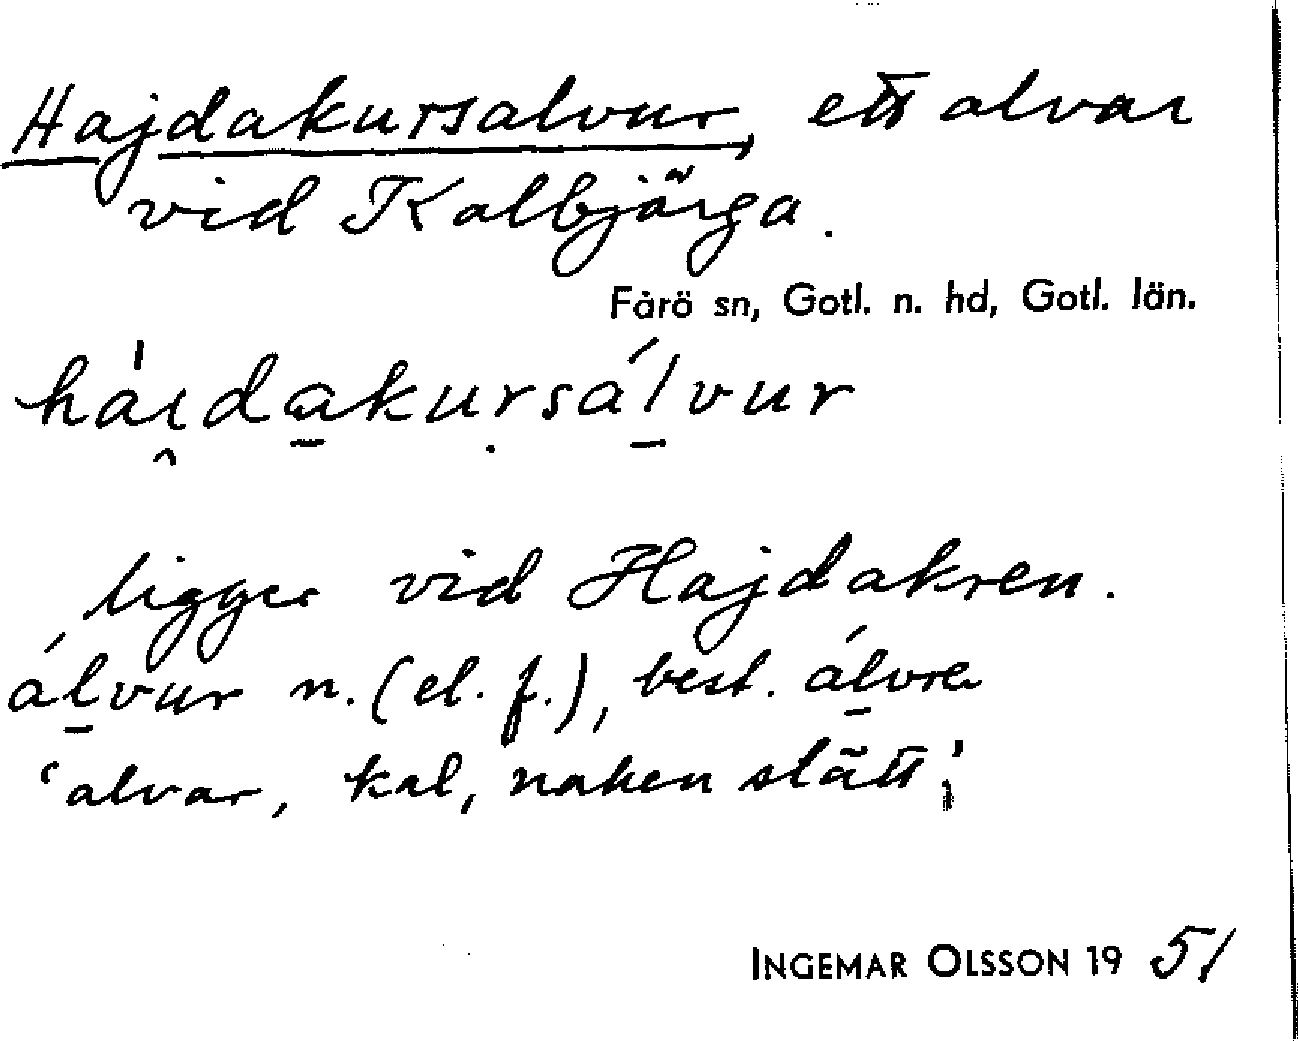 Hajdakursalvur, ett alvar
vid Kalbjärga.
Fårö sn, Gotl. n. hd, Gotl. län.
ha̍ɩ̯da̱kuṛsáḻvur
ligger vid Hajdakren.
áḻvur n. (el. f.), best. áḻvre
‘alvar, kal, naken slätt’;
INGEMAR OLSSON 1951